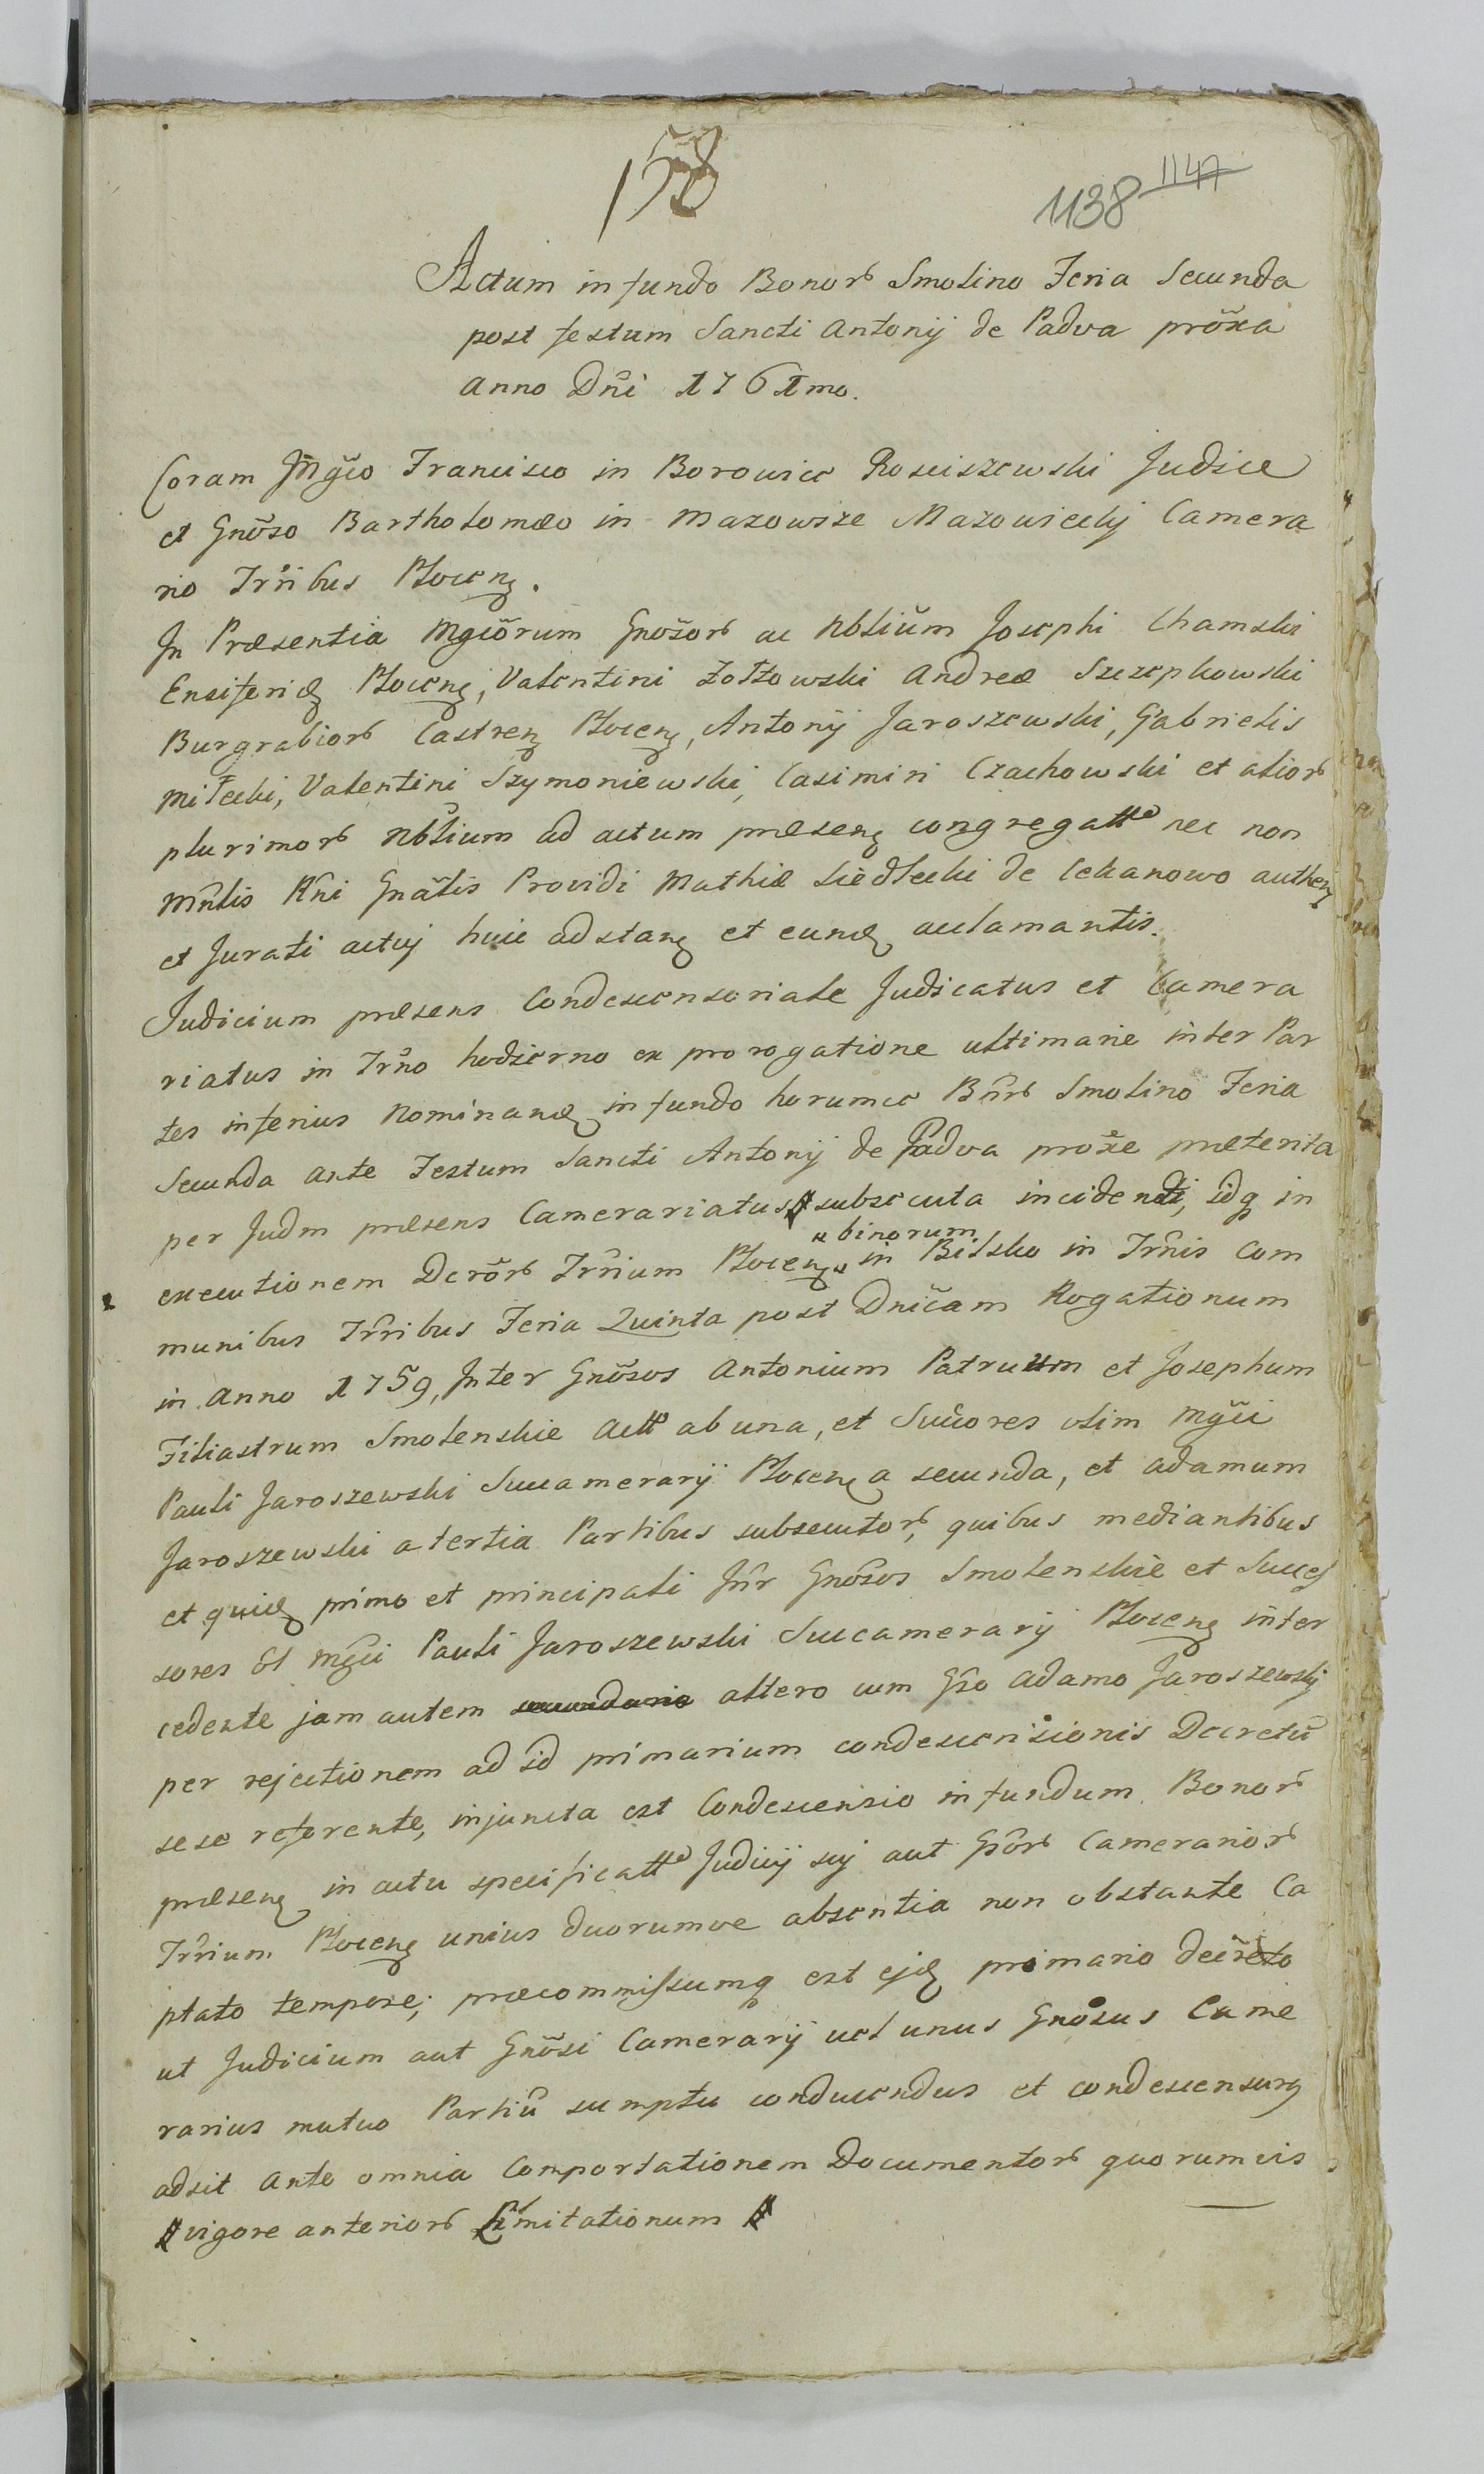 158
1138 1147
Actum in fundo Bonorb Smolino Feria Secunda
post festum Sancti Antonij de Padva prõxa
Anno Dñi 1761mo.
Coram Mgco Francisco in Borowice Rosciszewski Judice
et Gnõso Bartholomæo in Mazowsze Mazowiecky Camera
rio Trribus Plocenz.
In Præsentia Mgcõrum Gnõsorb ac Nbliũm Josephi Chamski
Ensiferidz Plocenz, Valentini Zołtowski Andreæ Szczepkowski
Burgrabiorb Castrenz Plocenz, Antonij Jaroszewski, Gabrielis
Miłecki, Valentini Szymoniewski, Casimiri Czachowski et aliorb
plurimorb Nblium ad actum præsenz congregatto nec non
Mñlis Rñi Gnãlis Providi Mathiæ Siedlecki de Cekanowo authenz
et Jurati actuj huic adstanz et eundz acclamantis.
Judicium præsens Condescensoriale Judicatus et Camera
riatus in Trño hodierno ex prorogatione ultimarie inter Par
tes inferius Nominandz in fundo horumce Bñrb Smolino Feria
Secunda ante Festum Sancti Antonij de Padva proxe præterita
per Judm præsens Camerariatus subsecuta incidendi, idq in
binorum
executionem Dcrõrb Trrium Plocenz in Bilsko in Trñis Com
munibus Trribus Feria Quinta post Dnĩcam Rogationum
in Anno 1759, Inter Gnõsos Antonium Patruum et Josephum
Filiastrum Smolenskie Actt ab una, et Succores olim Mgci
Pauli Jaroszewski Succamerarij Plocenz a secunda, et Adamum
Jaroszewski a tertia Partibus subsecutorb, quibus mediantibus
et quidz primo et principali Intr Gnõsos Smolenskie et Succes
sores ol Mgci Pauli Jaroszewski Succamerarij Plocenz inter
cedente jam autem secundario altero cum Gso Adamo Jaroszewskj
per rejectionem ad id primarium condescensionis Decretũ
sese referente, injuncta est Condescensio in fundum Bonorb
præsenz in actu specificatto Judicij sej aut Gsorb Camerariorb
Trrium Plocenz unius duorumve absentia non obstante Ca
ptato tempore; præcommissumq est ejdz primario decreto
ut Judicium aut Gnõsi Camerarij vel unus Gnõsus Came
rarius mutuo Partiũ sumptu conducendus et condescensurg
adsit ante omnia Comportationem Documentorb quorumvis
vigore anteriorb Limitationum